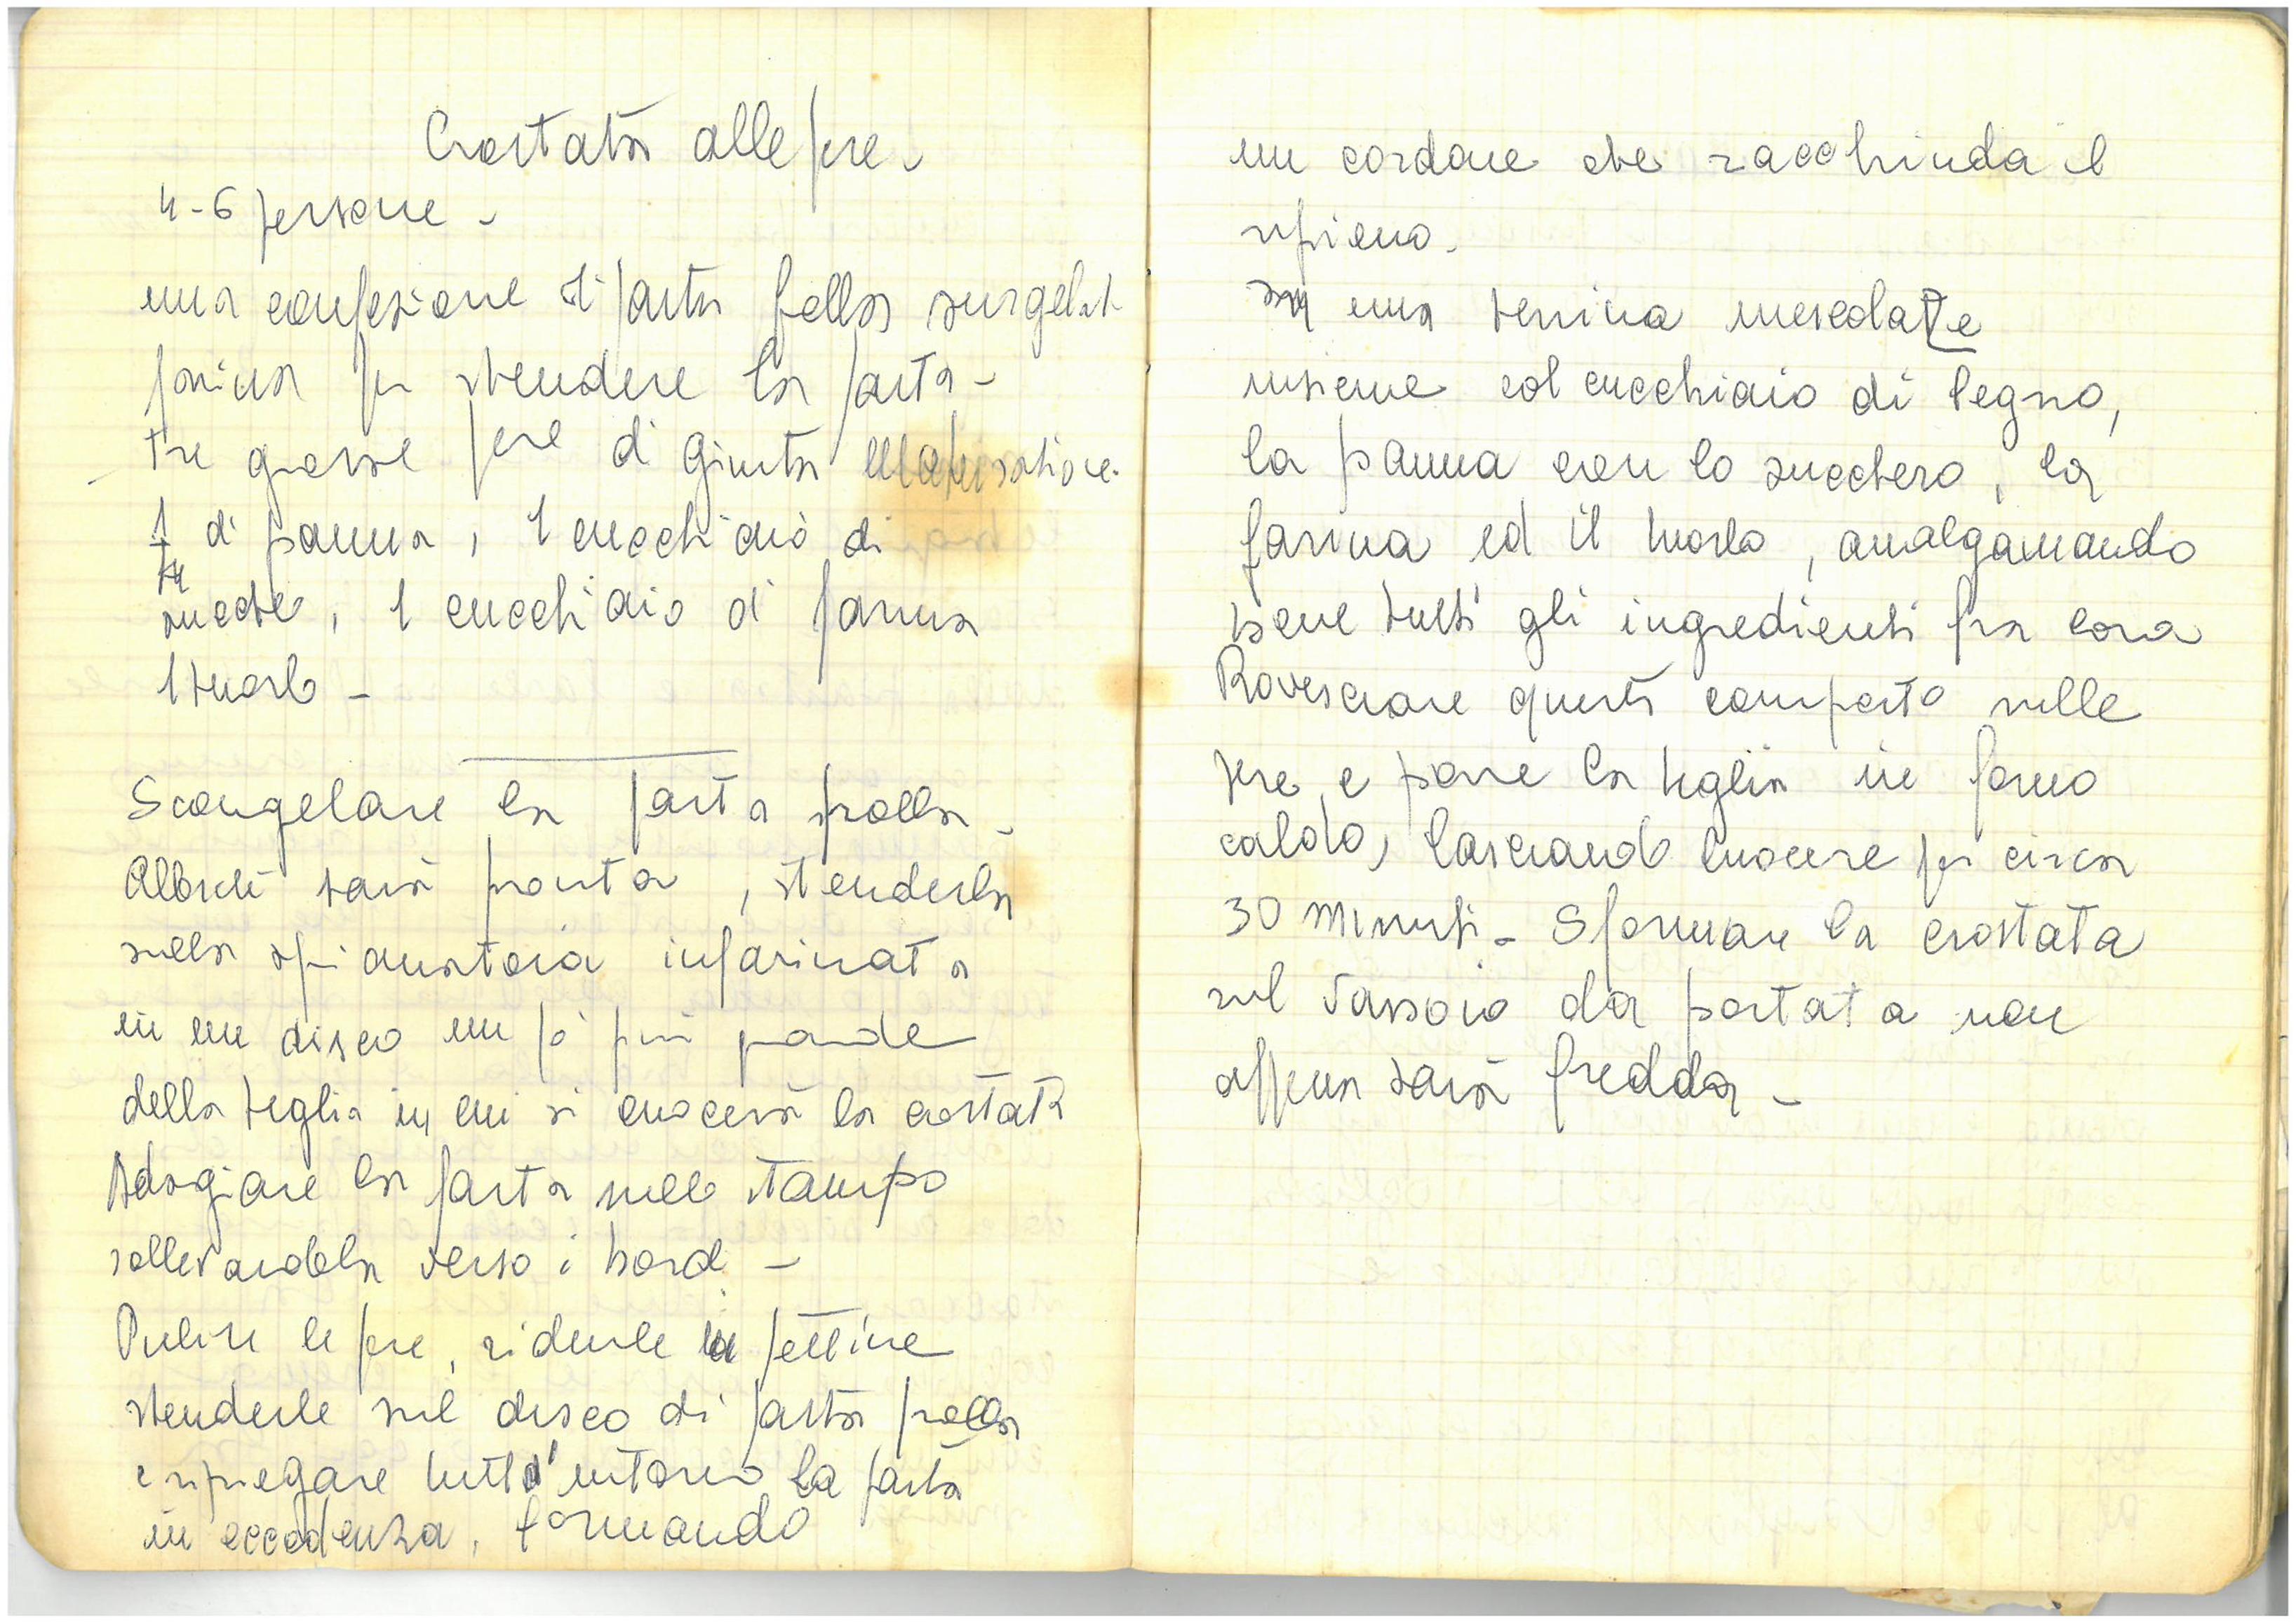 Crostata alle pere.
4-6 persone -
una confezione di pasta frolla surgelat
farina per stendere la pasta -
tre grosse pere di giusta maturazione.
1/4 di panna, 1 cucchiaio di
zucche, 1 cucchiaio di farina
1 tuorlo -
Scongelare la pasta frolla -
Allorchè sarà pronta, stenderla
sulla spianatoia infarinata
in un disco un pò più grande
della teglia in cui si cuocerà la crostata
Adagiare la pasta nello stampo
sollevandola verso i bordi -
Pulire le pere, ridurle in fettine
stenderle sul disco di pasta frolla
e ripiegare tutt'intorno la pasta
in eccedenza, formando
un cordone che racchiuda il
ripieno.
In una terrina mescolate
insieme col cucchiaio di legno,
la panna con lo zucchero, la
farina ed il tuorlo, amalgamando
bene tutti gli ingredienti fra lora
Rovesciare questo composto sulle
pere e porre la teglia in forno
caldo, lasciando cuocere per circa
30 minuti - Sformare la crostata
sul vassoio da portata non
appena sarà fredda -